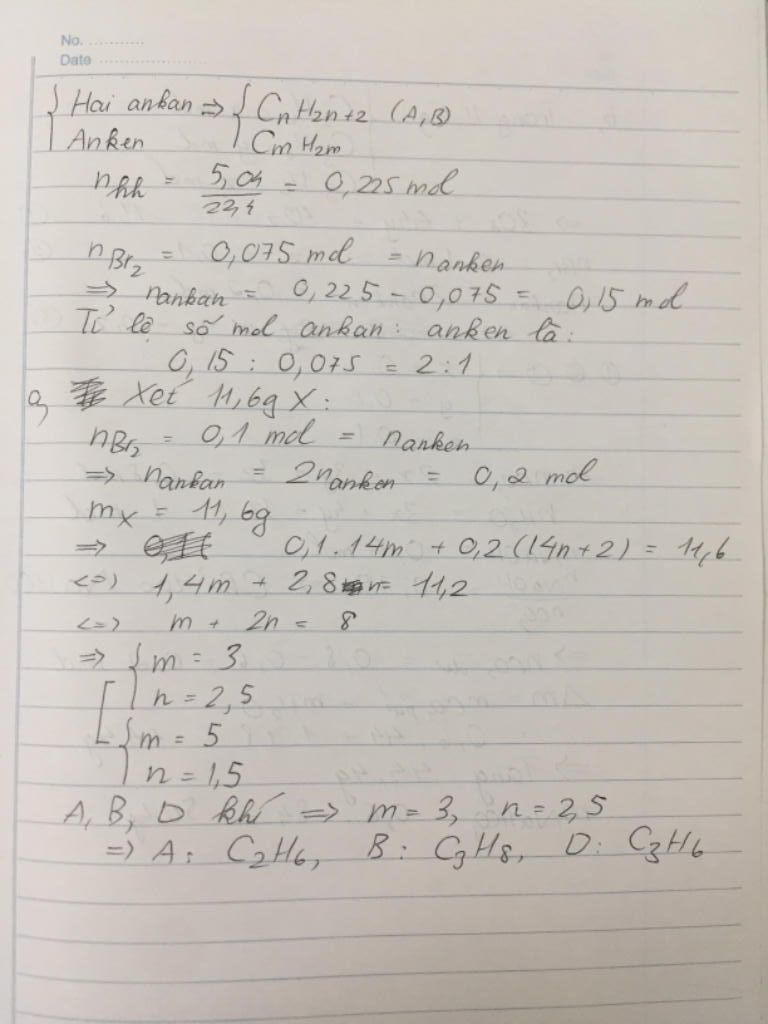 No. ............
Date ........................
{ Hai ankan => { CnH2n+2 (A,B)
Anken CmH2m
nhh = 5,04/22,4 = 0,225 mol
nBr2 = 0,075 mol = nanken
=> nankan = 0,225 - 0,075 = 0,15 mol
Tỉ lệ số mol ankan : anken là :
0,15 : 0,075 = 2 : 1
a, Xét 11,6g X :
nBr2 = 0,1 mol = nanken
=> nankan = 2nanken = 0,2 mol
mX = 11,6g
=> 0,1.14m + 0,2(14n+2) = 11,6
<=> 1,4m + 2,8n = 11,2
<=> m + 2n = 8
=> [ { m = 3
n = 2,5
{ m = 5
n = 1,5
A, B, D khí => m = 3, n = 2,5
=> A : C2H6, B : C3H8, D : C3H6